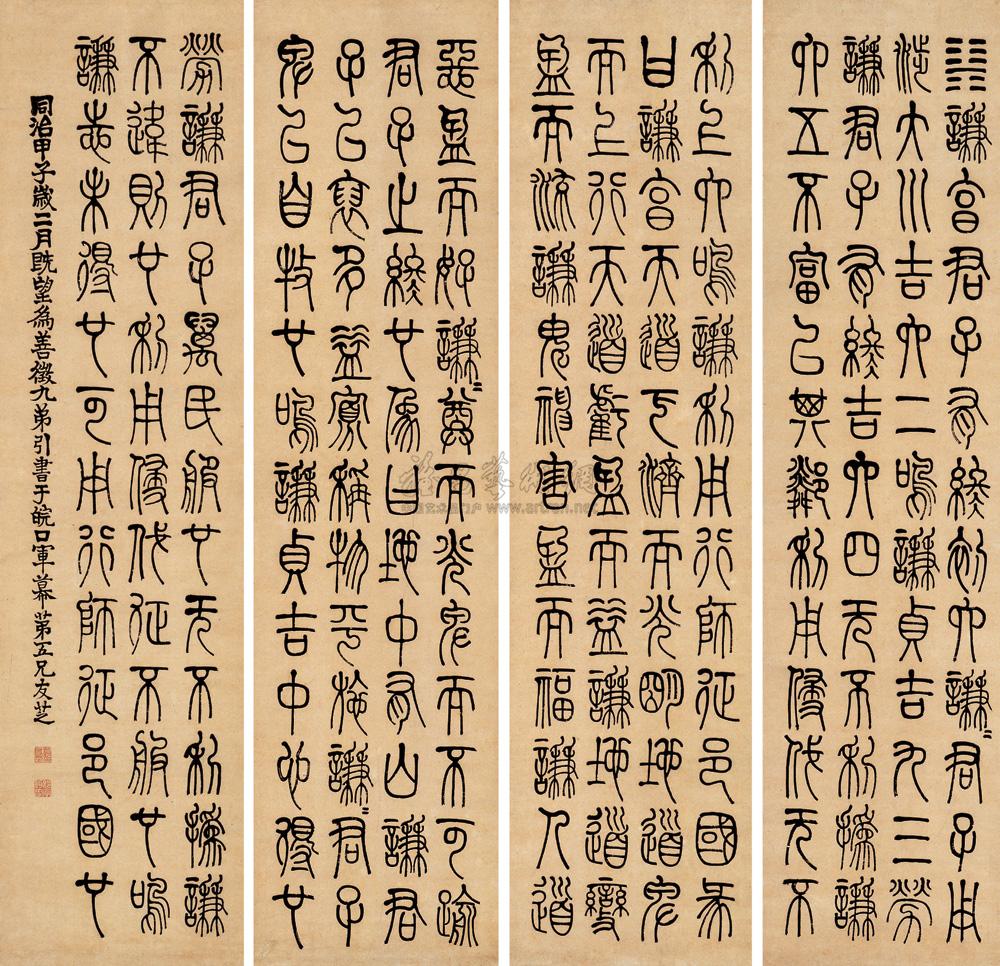 ䷎謙亯君子有終初六謙=君子用
涉大川吉六二鳴謙貞吉九三勞
謙君子有終吉六四无不利撝謙
六五不富以其鄰利用侵伐无不
利上六鳴謙利用行師征邑國彖
曰謙亯天道下濟而光明地道卑
而上行天道虧盈而益謙地道變
盈而流謙鬼神害盈而福謙人道
惡盈而好謙=尊而光卑而不可踰
君子之終也象曰地中有山謙君
子以裒多益寡稱物平施謙=君子
卑以自牧也鳴謙貞吉中心得也
勞謙君子萬民服也无不利撝謙
不違則也利用侵伐征不服也鳴
謙志未得也可用行師征邑國也
同治甲子歲二月既望為善徵九弟引書于皖口軍幕苐五兄友芝